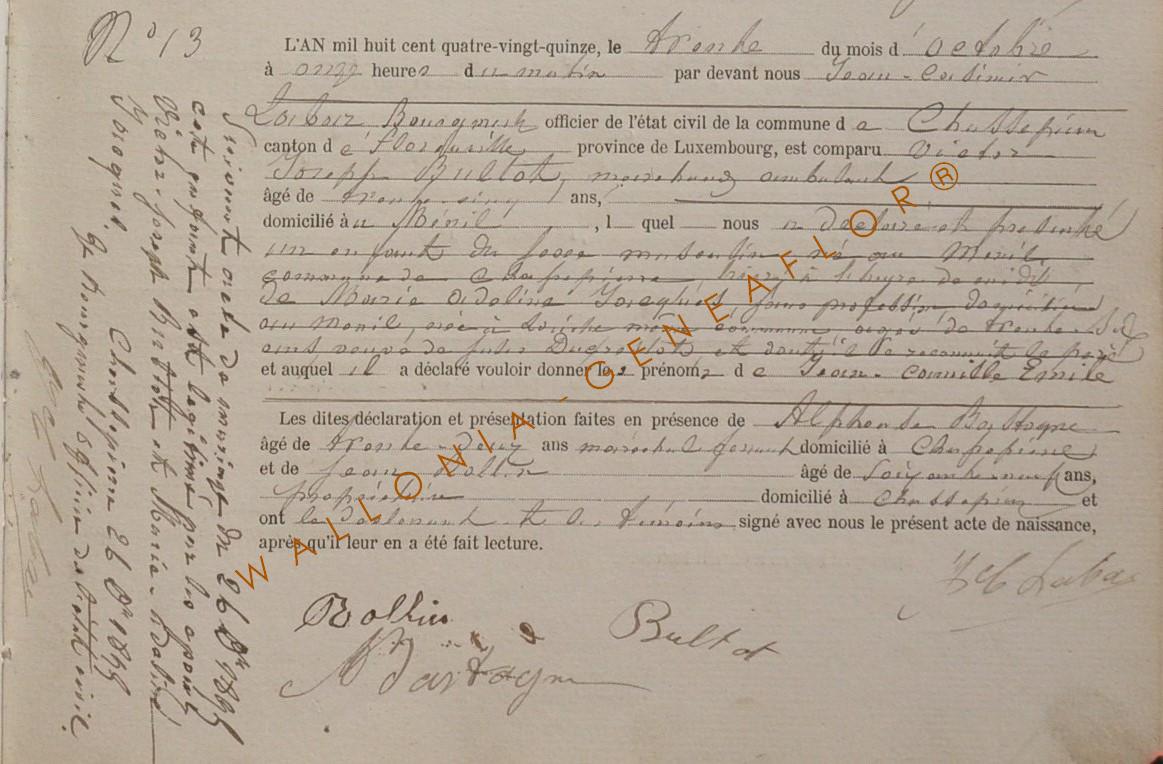 N° 13
L'AN mil huit cent quatre-vingt-quinze, le trente du mois d' octobre
à onze heures du matin par devant nous Jean-Casimir
Labar Bourgmestre officier de l'état civil de la commune de Chassepierre
canton de Florenville province de Luxembourg, est comparu Victor
Joseph Bultot, marchand ambulant
âgé de trente-cinq ans,
domicilié au Ménil, l quel nous a déclaré et présenté
un enfant du sexe masculin né au Menil
commune de Chassepierre hier à heures de midi,
de Marie Adeline Jacquet sans profession domiciliée
au Menil, née à même commune, âgée de trente-
ans veuve de Jules et dont il se reconnait le père
et auquel il a déclaré vouloir donner les prénoms de Jean-Camille Emile
Les dites déclaration et présentation faites en présence de Alphonse Bastogne
âgé de trente-deux ans maréchal ferrant domicilié à Chassepierre
et de Jean Rollin âgé de soixante-neuf ans,
propriétaire domicilié à Chassepierre et
ont le déclarant et les témoins signé avec nous le présent acte de naissance,
après qu'il leur en a été fait lecture.
Rollin
Bultot
J C Labar
A Bastogne
Suivant acte de mariage du 26 Xbre 1895
cet enfant a été légitimé par les époux
Victor-Joseph Bultot et Marie-Adeline
Jacquet. Chassepierre 26 Xbre 1895
Le bourgmestre officier de l'état civil.
J C Labar
WALLONIA - GENEAFLOR®